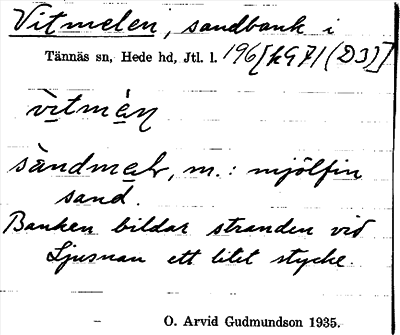 Vitmelen, sandbank i
Tännäs sn, Hede hd, Jtl. l. 196[k971(D3)]
vìtmȩ́ƞ
sàndmal, m.: mjölfin
sand.
Banken bildar stranden vid
Ljusnan ett litet stycke.
– O. Arvid Gudmundson 1935.